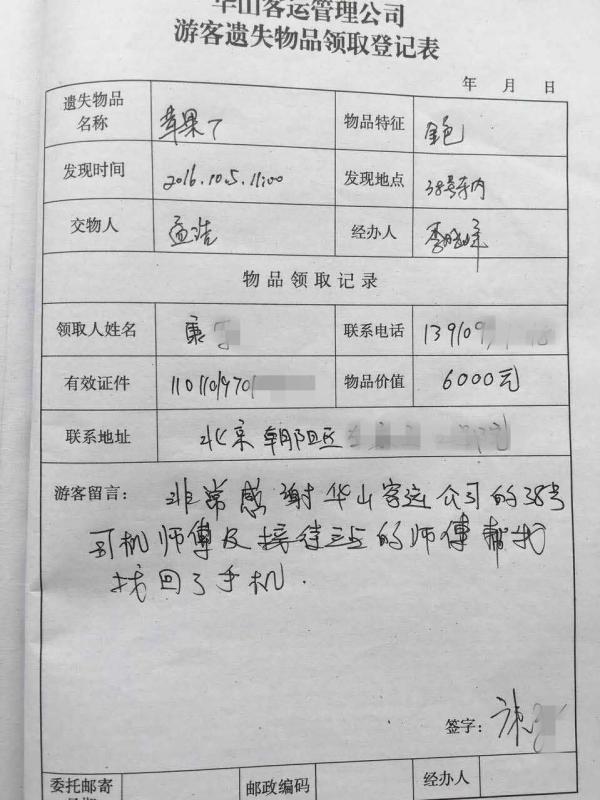 华山客运管理公司
游客遗失物品领取登记表
年 月 日
遗失物品名称 苹果7 物品特征 金色
发现时间 2016.10.5.11:00 发现地点 38号车内
交物人 孟浩 经办人 李晓峰
物品领取记录
领取人姓名 康 联系电话 139109
有效证件 110110970 物品价值 6000元
联系地址 北京朝阳区
游客留言: 非常感谢华山客运公司的38号
司机师傅及接待三五的师傅帮我
找回了手机.
签字: 康
委托邮寄 邮政编码 经办人